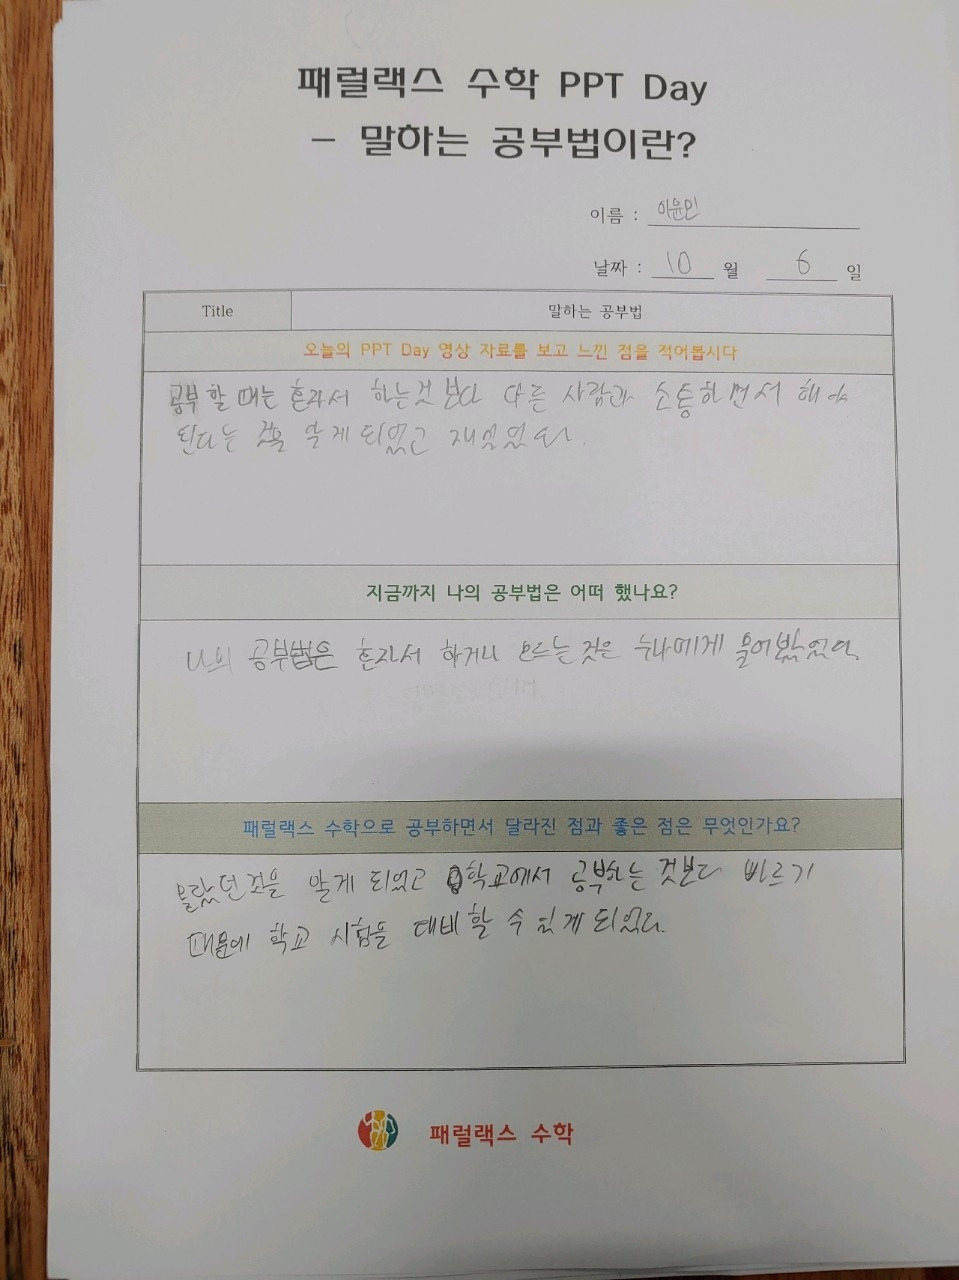 패럴랙스 수학 PPT Day
- 말하는 공부법이란?
이름 : 이윤민
날짜 : 10 월 6 일
Title 말하는 공부법
오늘의 PPT Day 영상 자료를 보고 느낀 점을 적어봅시다
공부할 때는 혼자서 하는것 보다 다른 사람과 소통하면서 해야
된다는 것을 알게 되었고 재밌었다.
지금까지 나의 공부법은 어떠 했나요?
나의 공부법은 혼자서 하거나 모르는것은 누나에게 물어봤었다.
패럴랙스 수학으로 공부하면서 달라진 점과 좋은 점은 무엇인가요?
몰랐던것을 알게 되었고 학교에서 공부하는 것보다 빠르기
때문에 학교 시험을 대비 할 수 있게 되었다.
패럴랙스 수학